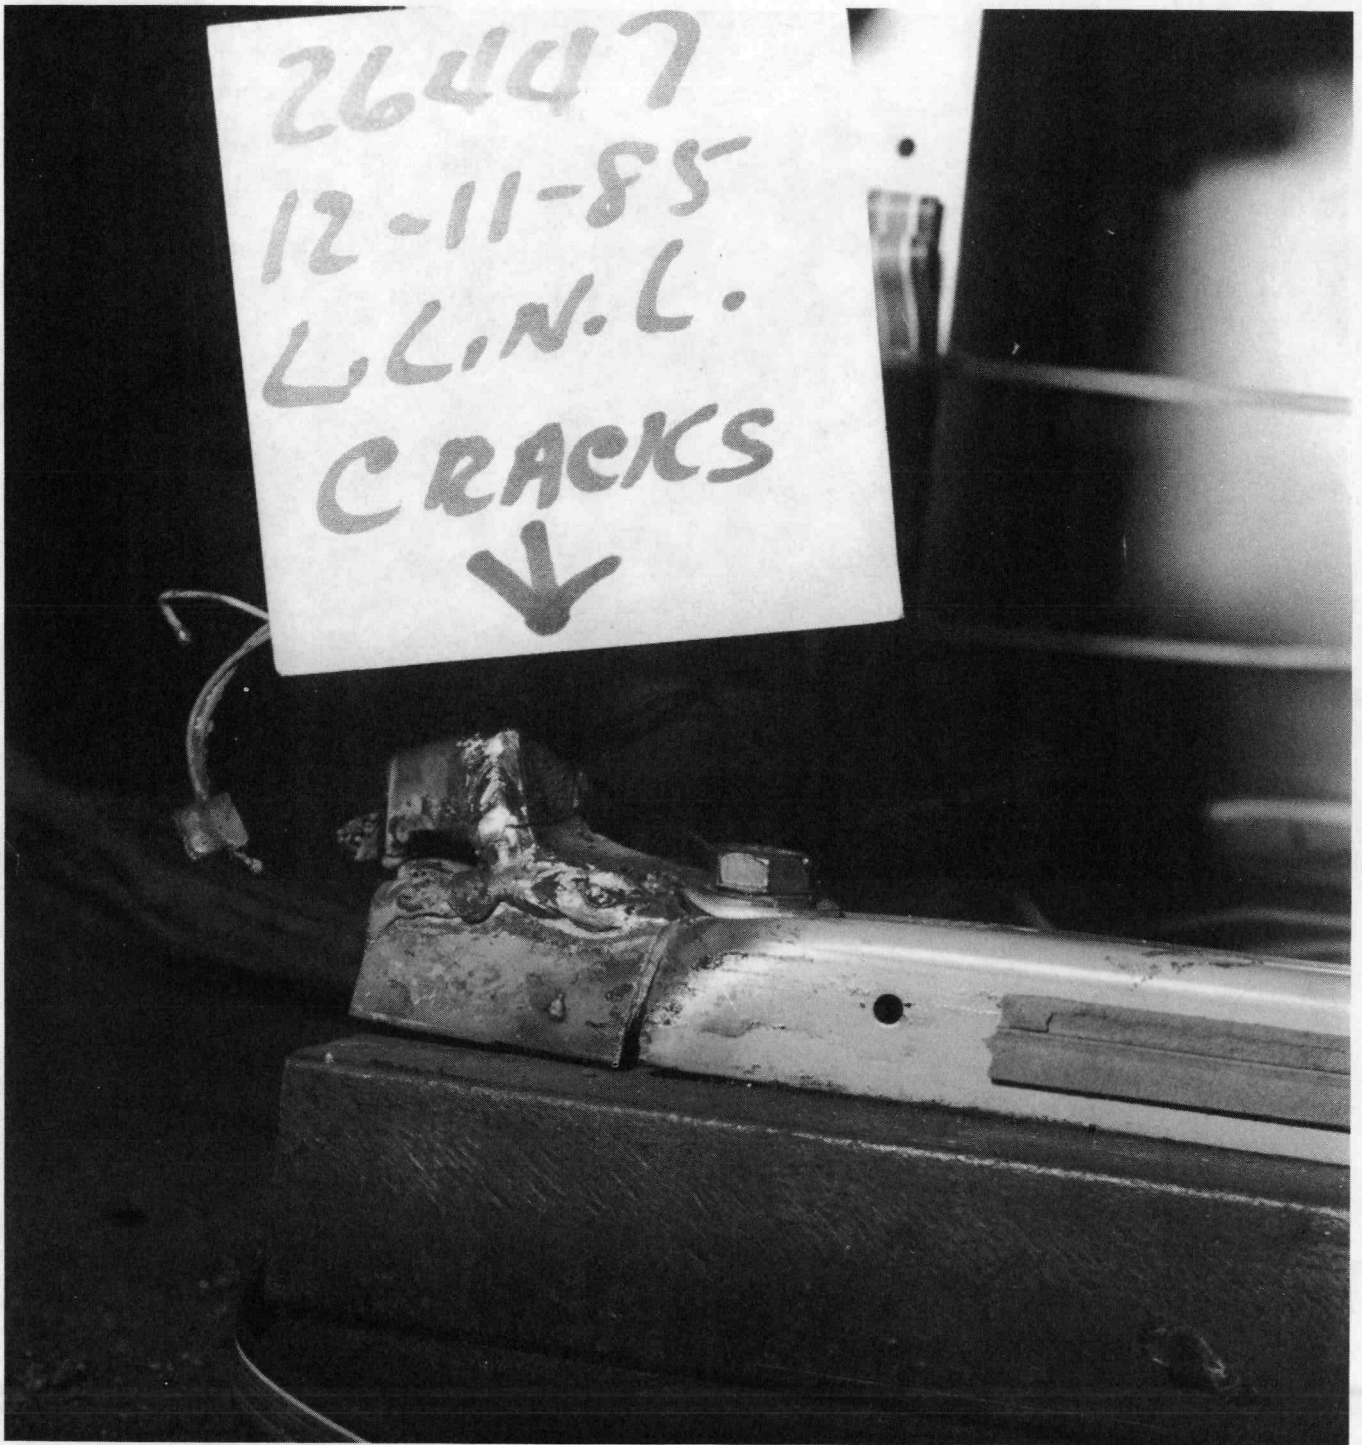 26447
12-11-85
L.L.N.L.
CRACKS